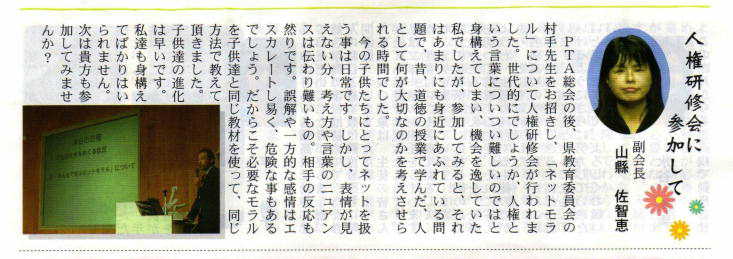 人権研修会に
参加して
副会長
山縣　佐智恵
ＰＴＡ総会の後、県教育委員会の
村手先生をお招きし、「ネットモラ
ル」について人権研修会が行われま
した。世代的にでしょうか、人権と
いう言葉についつい難しいのではと
身構えてしまい、機会を逸していた
私でしたが、参加してみると、それ
はあまりにも身近にあふれている問
題で、昔、道徳の授業で学んだ、人
として何が大切なのかを考えさせら
れる時間でした。
今の子供たちにとってネットを扱
う事は日常です。しかし、表情が見
えない分、考え方や言葉のニュアン
スは伝わり難いもの。相手の反応も
然りです。誤解や一方的な感情はエ
スカレートし易く、危険な事もある
でしょう。だからこそ必要なモラル
を子供達と同じ教材を使って、同じ
方法で教えて
頂きました。
子供達の進化
は早いです。
私達も身構え
てばかりはい
られません。
次は貴方も参
加してみませ
んか？